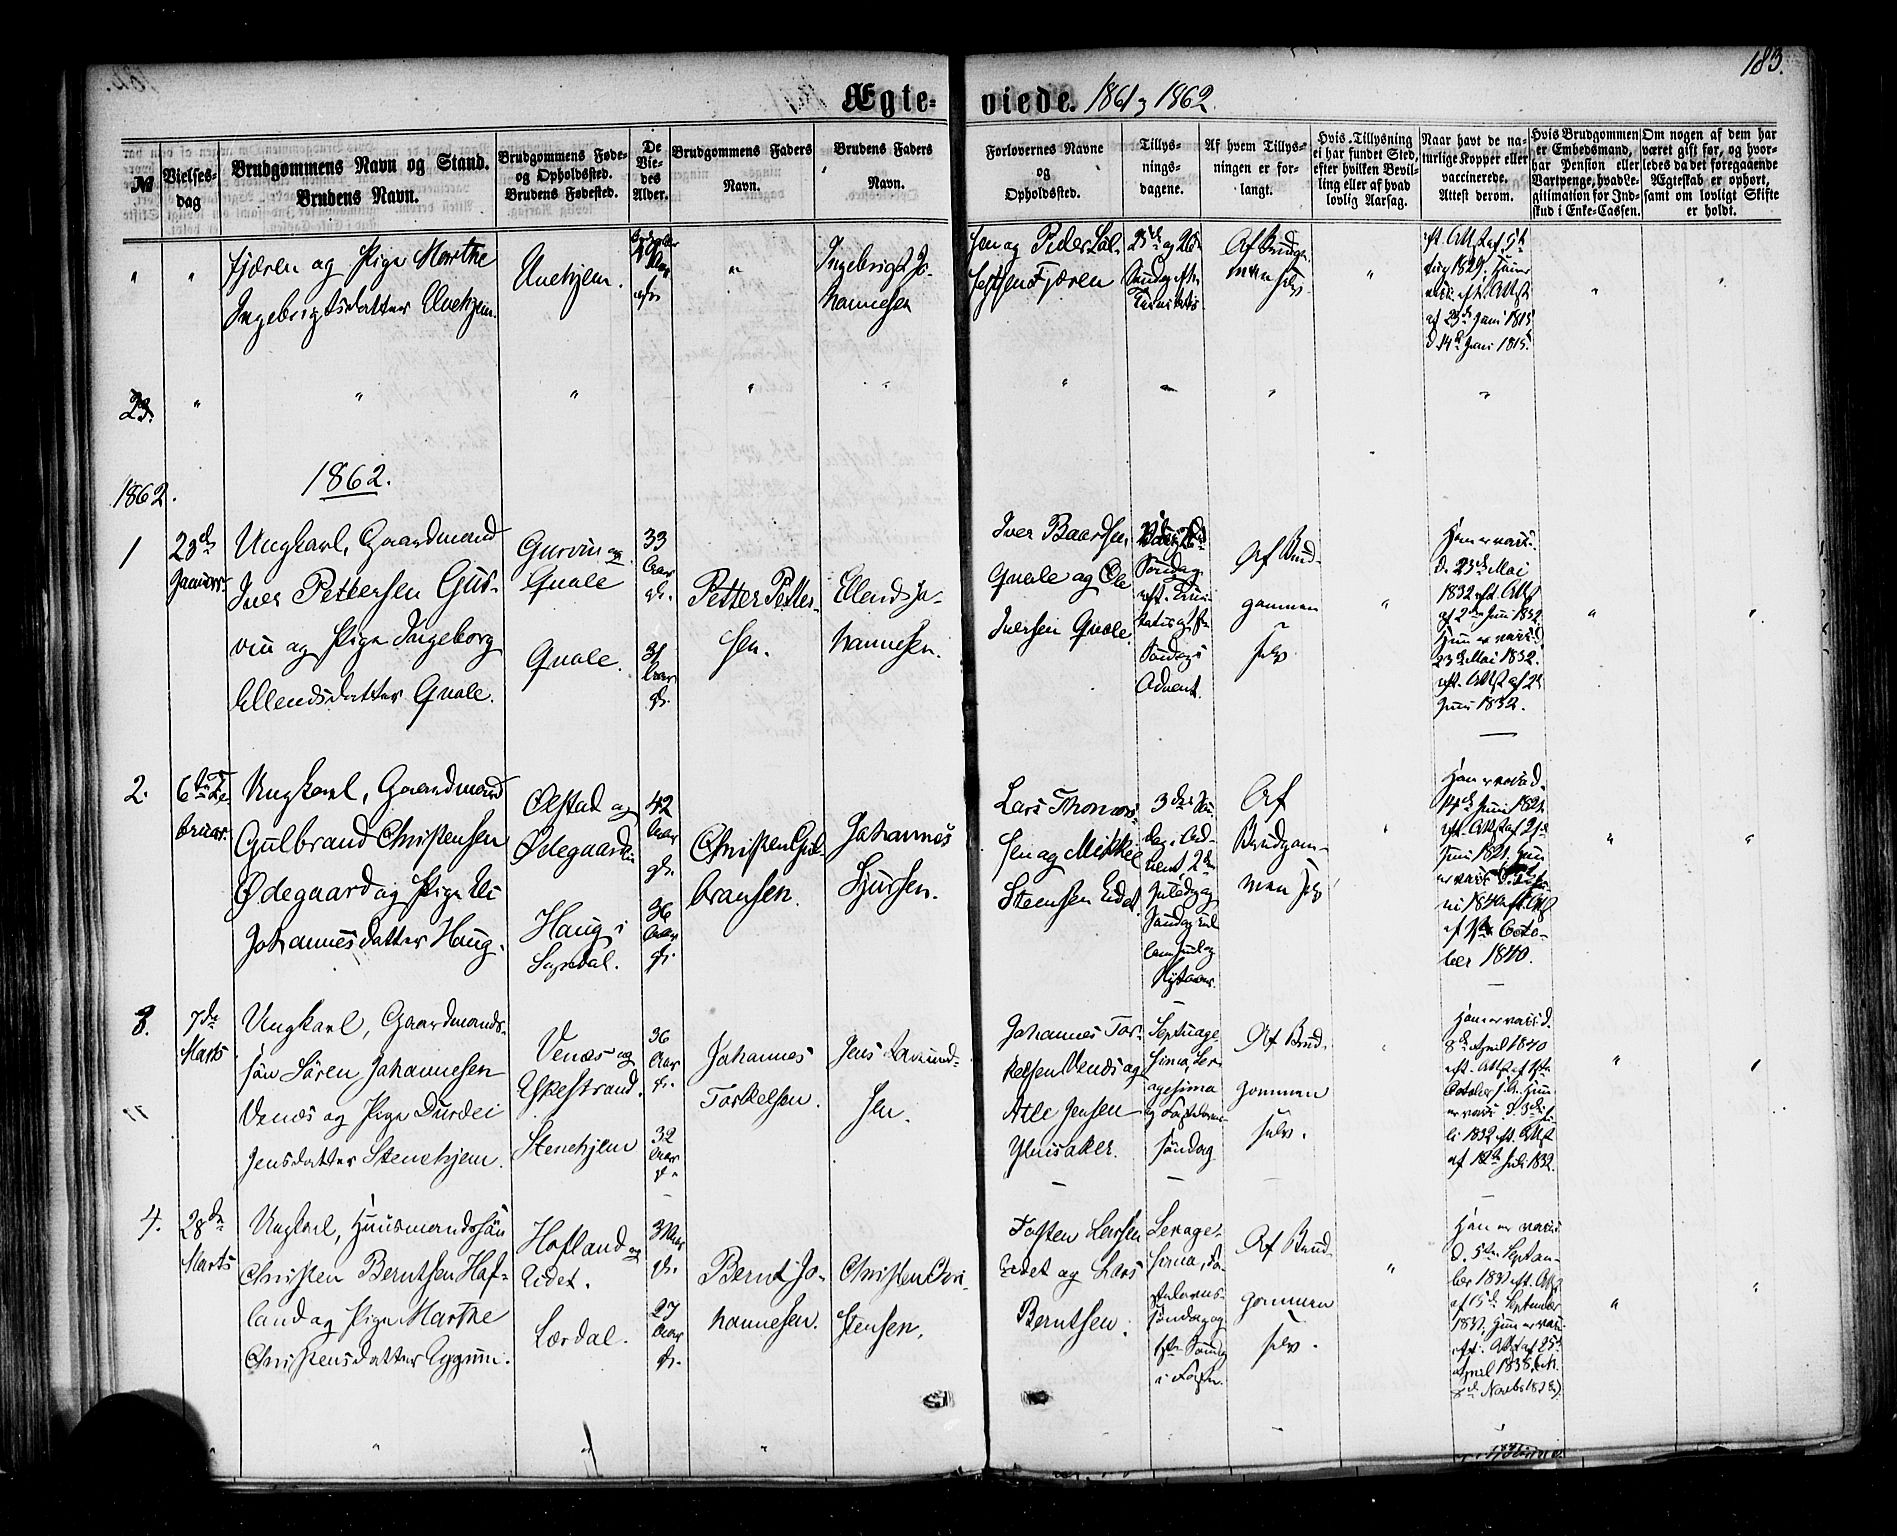 183.
Ægte-
viede. 1861 og 1862.
№
Vielses-
dag
Brudgommens Navn og Stand.
Brudens Navn.
Brudgommens Føde-
og Opholdssted.
Brudens Fødested.
De
Vie-
des
Alder.
Brudgommens Faders
Navn.
Brudens Faders
Navn.
Forlovernes Navne
og
Opholdssted.
Tillys-
nings-
dagene.
Af hvem Tillys-
ningen er for-
langt.
Hvis Tillysning
ei har fundet Sted,
efter hvilken Bevil-
ling eller af hvad
lovlig Aarsag.
Naar havt de na-
turlige Kopper eller
vaccinerede.
Attest derom.
Hvis Brudgommen
er Embedsmand,
har Pension eller
Vartpenge, hvad Le-
gitimation for Ind-
skud i Enke-Cassen.
Om nogen af dem har
været gift før, og hvor-
ledes da det foregaaende
Ægteskab er ophørt,
samt om lovligt Skifte
er holdt.
" "
Fjæren og Pige Marthe
Ingebrigtsdatter Unehjem.
Unehjem.
"
Ingebrigt Jo-
hannesen
sen og Peder Lal-
Fjæren
25de og 26de
Søndag eft.
Trinitatis
Af Brudgom-
men selv
"
af 23de Juni 1815
d. 14de Juni 1815.
" "
23. "
1862.
1862.
1
23de
Januar
Ungkarl, Gaardmand
Iver Pettersen Gur-
vin og Pige Ingeborg
Ellendsdatter Qvale.
Gurvin og
Qvale
Qvale.
33
Aar
gl.
31
Aar
gl.
Petter Petter-
sen.
Ellend Jo-
hannesen.
Iver Baardsen
Qvale og Ole
Iversen Qvale.
Søndag
eft. Trini-
tatis og
Søndag i
Advent.
Af Brud-
gommen
selv
"
Han er vacc.
d. 23de Mai
1832 eft. Attst
af 2den Juni 1832
Hun er vacc. d.
23de Mai 1832.
eft. Attst af 2d
Juni 1832.
"
2.
6te Fe-
bruar.
Ungkarl, Gaardmand
Gulbrand Christensen
Ødegaard og Pige Eli
Johannesdatter Haug.
Ølstad og
Ødegaard
Haug i
Sogndal.
42
Aar
gl.
36
Aar
gl.
Christen Gul-
bransen.
Johannes
Sjursen.
Lars Thomas-
sen og Mikkel
Steensen Eidet.
3die Søn-
dag i Ad-
vent, 2den
Juledag og
Søndag mel-
lem Juul og
Nytaar.
Af
Brudgom-
men selv
Han er vacc. d.
14de Juni 1821.
eft. Attst af 21de
Juni 1821. Hun
ni 1840 eft. Attst
Octo-
ber 1840.
" "
3.
7de
Marts
Ungkarl, Gaardmands-
søn Søren Johannesen
Venæs og Pige Durdei
Jensdatter Stenehjem.
Venæs og
Eskestrand.
Stenehjem
36
Aar
gl.
32
Aar
gl.
Johannes
Torkelsen.
Jens Amund-
sen.
Johannes Tor-
kelsen Venæs og
Atle Jensen
Ylvisaker.
Septuage-
sima, Sex-
agesima
og Fastelavns-
søndag.
Af Brud-
gommen
selv.
Han er vacc. d.
8de April 1840
October s. A. Hun
er vacc. d. 3die Ju-
li 1832 eft. Attst
af 12te Juli 1832.
" "
4.
28de
Marts
Ungkarl, Huusmandssøn
Christen Berntsen Haf-
land og Pige Marthe
Christensdatter Eggum.
Hafland og
Eidet.
Lærdal.
Aar
gl.
27
Aar
gl.
Bernt Jo-
hannesen.
Christen Chri-
stensen.
Tosten Larsen
Eidet og Lars
Berntsen.
Sexage-
sima, Fa-
stelavns-
søndag og
1ste Søndag
i Fasten.
Af Brud-
gommen
selv.
"
Han er vacc.
d. 5te Septem-
ber 1831 eft. Attst
af 15de September
1831, Hun er vacc.
eft. Attst af 25de
April 1838
" "